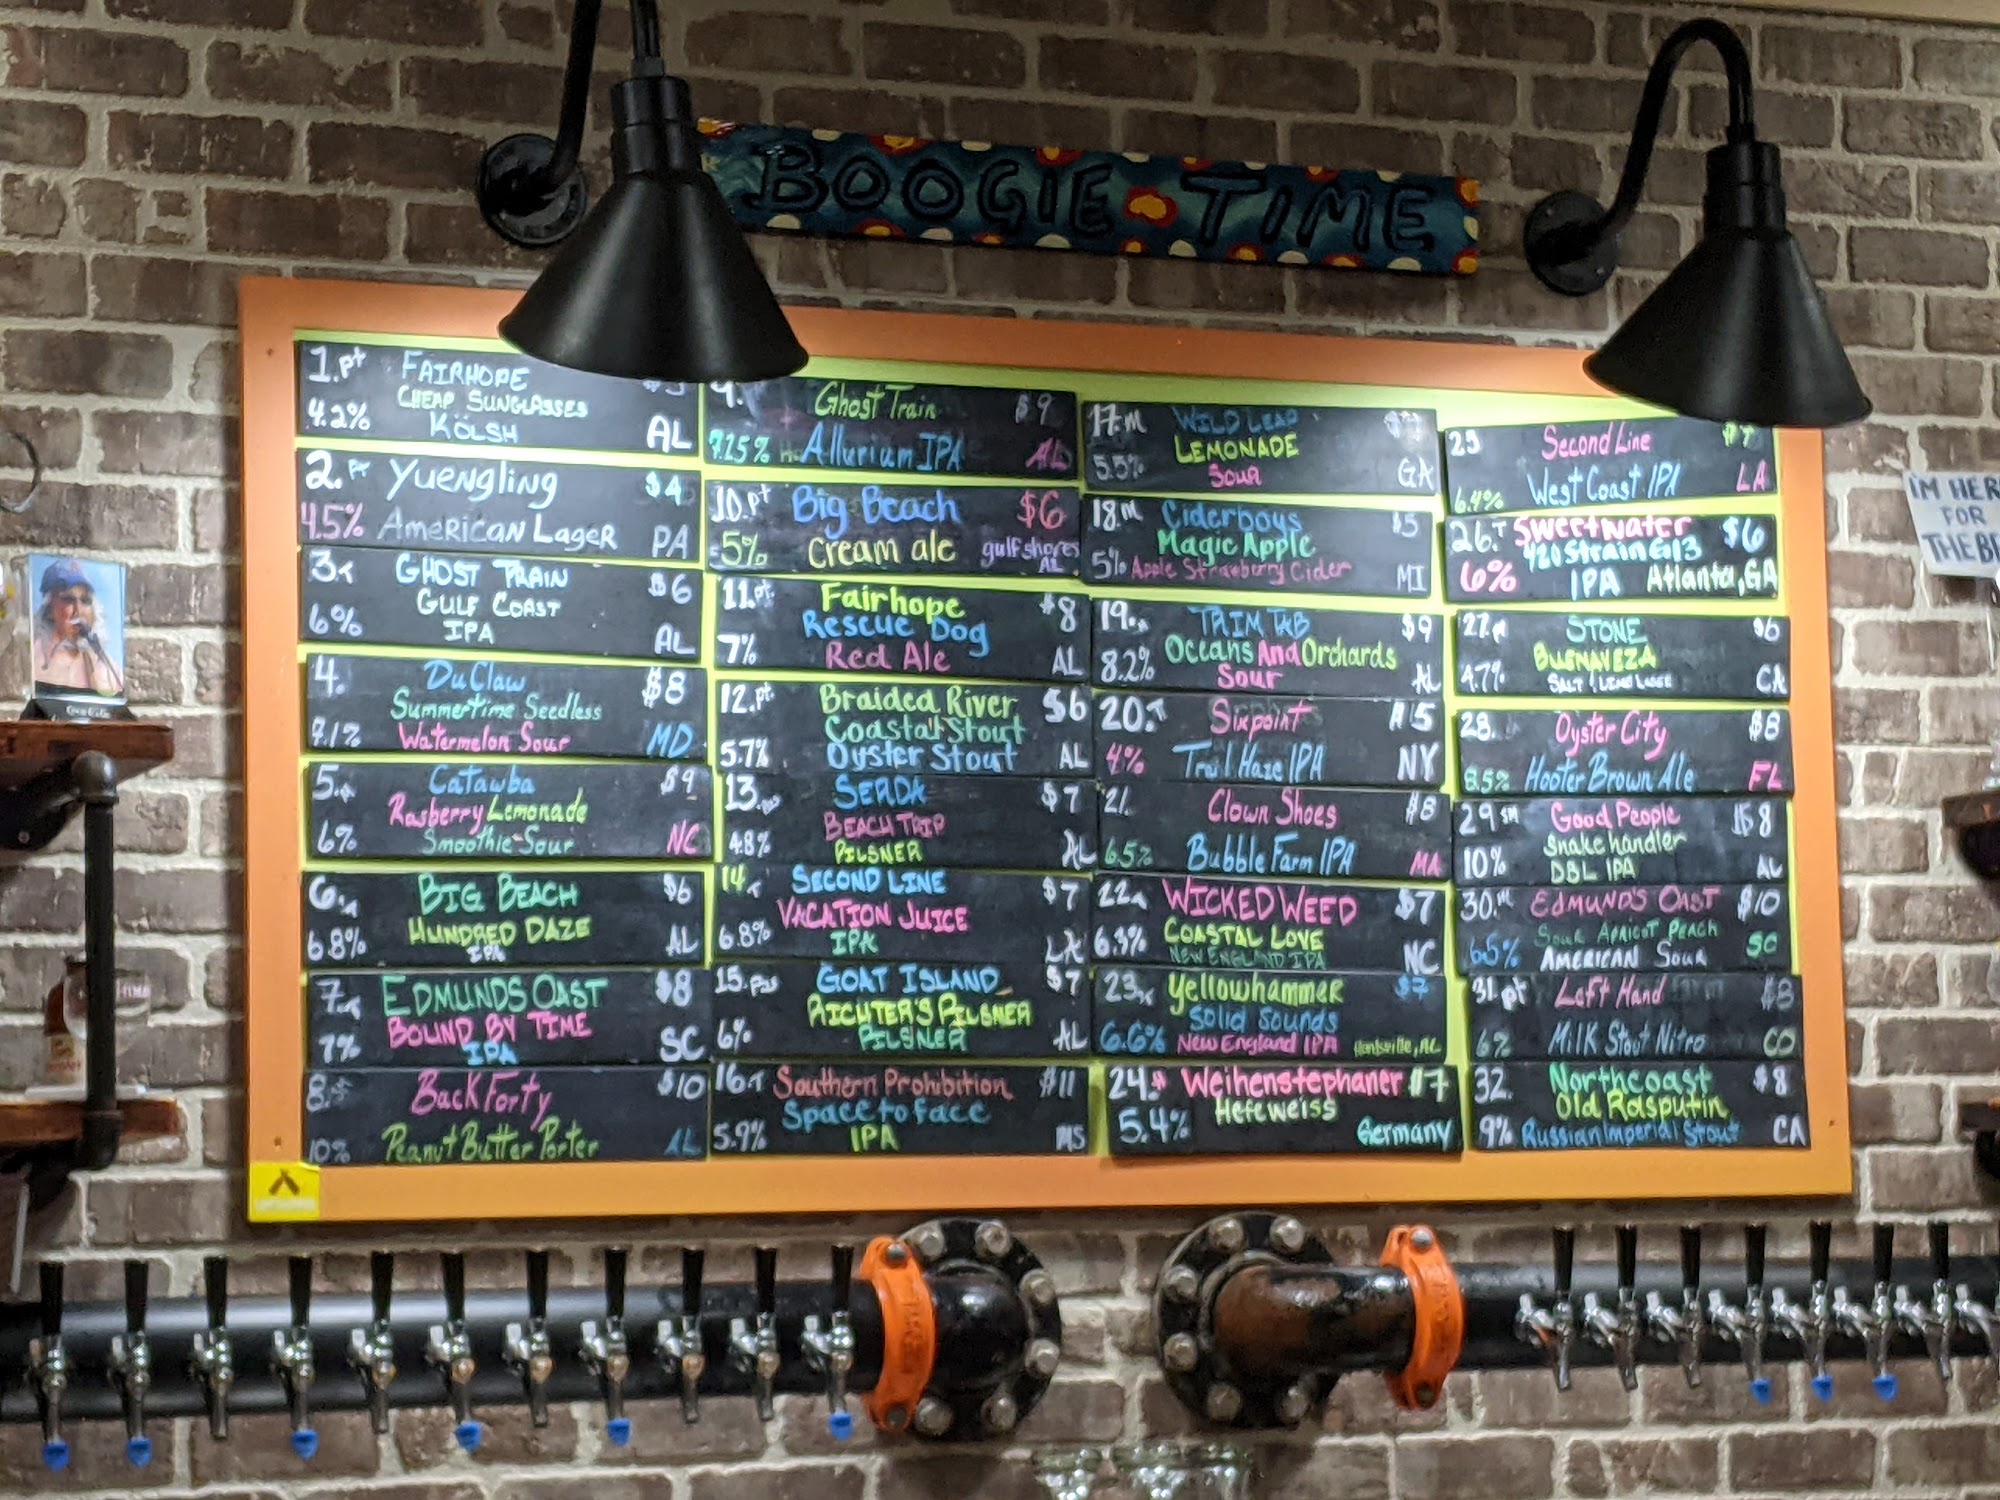 BOOGIE TIME
1. pt FAIRHOPE
CHEAP SUNGLASSES
4.2% KÖLSH AL
2. PT Yuengling $4
4.5% AMERICAN LAGER PA
3. GHOST TRAIN $6
GULF COAST
6% IPA AL
4. DuClaw $8
Summertime Seedless
7.1% Watermelon Sour MD
5. Catawba $9
Rasberry Lemonade
6% Smoothie Sour NC
6. BIG BEACH $6
HUNDRED DAZE
6.8% IPA AL
7. EDMUNDS OAST $8
BOUND BY TIME
7% IPA SC
8. Back Forty $10
10% Peanut Butter Porter AL
9. Ghost Train $9
7.25% Allurium IPA AL
10. pt Big Beach $6
5% Cream ale gulf shores
AL
11. pt. Fairhope $8
Rescue Dog
7% Red Ale AL
12. pt. Braided River $6
Coastal Stout
5.7% Oyster Stout AL
13. SERDA $7
BEACH TRIP
4.8% PILSNER AL
14 SECOND LINE $7
VACATION JUICE
6.8% IPA LA
15. GOAT ISLAND $7
RICHTER'S PILSNER
6% PILSNER AL
16. Southern Prohibition $11
Space to face
5.9% IPA MS
17. M WILD LEAP
LEMONADE
5.5% SOUR GA
18. M Ciderboys $5
Magic Apple
5% Apple Strawberry Cider MI
19. TRIM TAB $9
Oceans And Orchards
8.2% Sour AL
20. Sixpoint $5
4% Trail Haze IPA NY
21. Clown Shoes $8
6.5% Bubble Farm IPA MA
22 WICKED WEED $7
COASTAL LOVE
6.3% NEW ENGLAND IPA NC
23. Yellowhammer $7
Solid Sounds
6.6% New England IPA Huntsville, AL
24. Weihenstephaner $7
Hefeweiss
5.4% Germany
25 Second Line $7
6.4% West Coast IPA LA
26. Sweetwater $6
420 Strain G13
6% IPA Atlanta, GA
27. STONE $6
BUENAVEZA
4.7% SALT & LIME LAGER CA
28. Oyster City $8
8.5% Hooter Brown Ale FL
29 Good People $8
Snake handler
10% DBL IPA AL
30. EDMUND'S OAST $10
Sour Apricot Peach
6.5% AMERICAN SOUR SC
31. pt Left Hand $8
6% Milk Stout Nitro CO
32. Northcoast $8
Old Rasputin
9% Russian Imperial Stout CA
I'M HER
FOR
THE BE